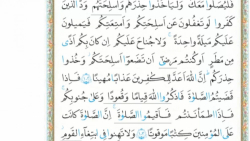 فَلْيُصَلُّوا۟ مَعَكَ وَلْيَأْخُذُوا۟ حِذْرَهُمْ وَأَسْلِحَتَهُمْ ۗ وَدَّ ٱلَّذِينَ
كَفَرُوا۟ لَوْ تَغْفُلُونَ عَنْ أَسْلِحَتِكُمْ وَأَمْتِعَتِكُمْ فَيَمِيلُونَ
عَلَيْكُم مَّيْلَةً وَٰحِدَةً ۚ وَلَا جُنَاحَ عَلَيْكُمْ إِن كَانَ بِكُمْ أَذًى
مِّن مَّطَرٍ أَوْ كُنتُم مَّرْضَىٰٓ أَن تَضَعُوٓا۟ أَسْلِحَتَكُمْ ۖ وَخُذُوا۟
حِذْرَكُمْ ۗ إِنَّ ٱللَّهَ أَعَدَّ لِلْكَٰفِرِينَ عَذَابًا مُّهِينًا فَإِذَا
قَضَيْتُمُ ٱلصَّلَوٰةَ فَٱذْكُرُوا۟ ٱللَّهَ قِيَٰمًا وَقُعُودًا وَعَلَىٰ جُنُوبِكُمْ ۚ
فَإِذَا ٱطْمَأْنَنتُمْ فَأَقِيمُوا۟ ٱلصَّلَوٰةَ ۚ إِنَّ ٱلصَّلَوٰةَ كَانَتْ
عَلَى ٱلْمُؤْمِنِينَ كِتَٰبًا مَّوْقُوتًا وَلَا تَهِنُوا۟ فِى ٱبْتِغَآءِ ٱلْقَوْمِ